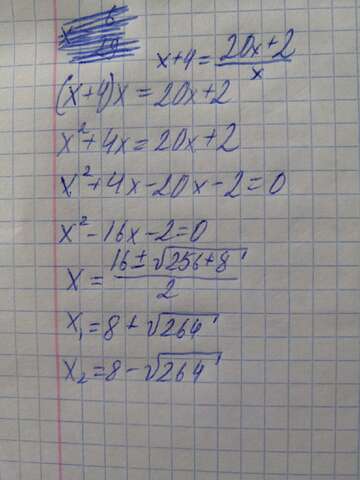 x+4 = (20x+2)/x
(x+4)x = 20x+2
x²+4x = 20x+2
x²+4x-20x-2=0
x²-16x-2=0
x = (16±√256+8)/2
x₁=8+√264
x₂=8-√264